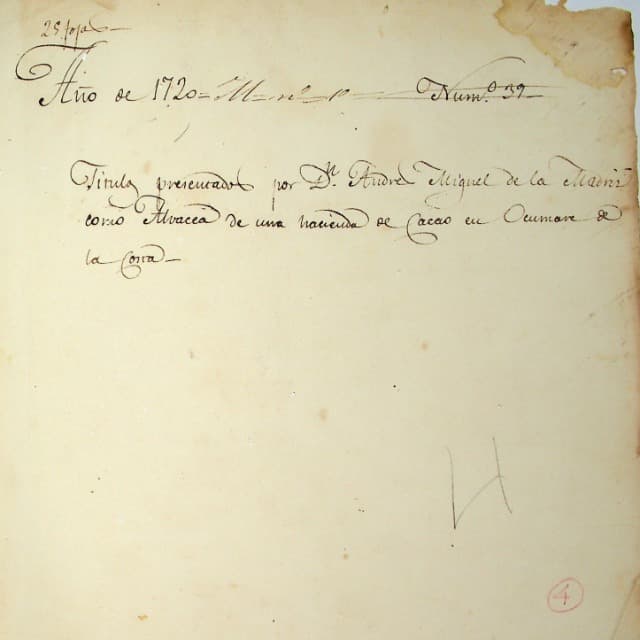 25 fojas
Año de 1720= M= nº 10 Num.º 39
Titulos presentados por Dn. Andres Miguel de la Madriz
como Alvacea de una hacienda de Cacao en Ocumare de
la Costa
H
4